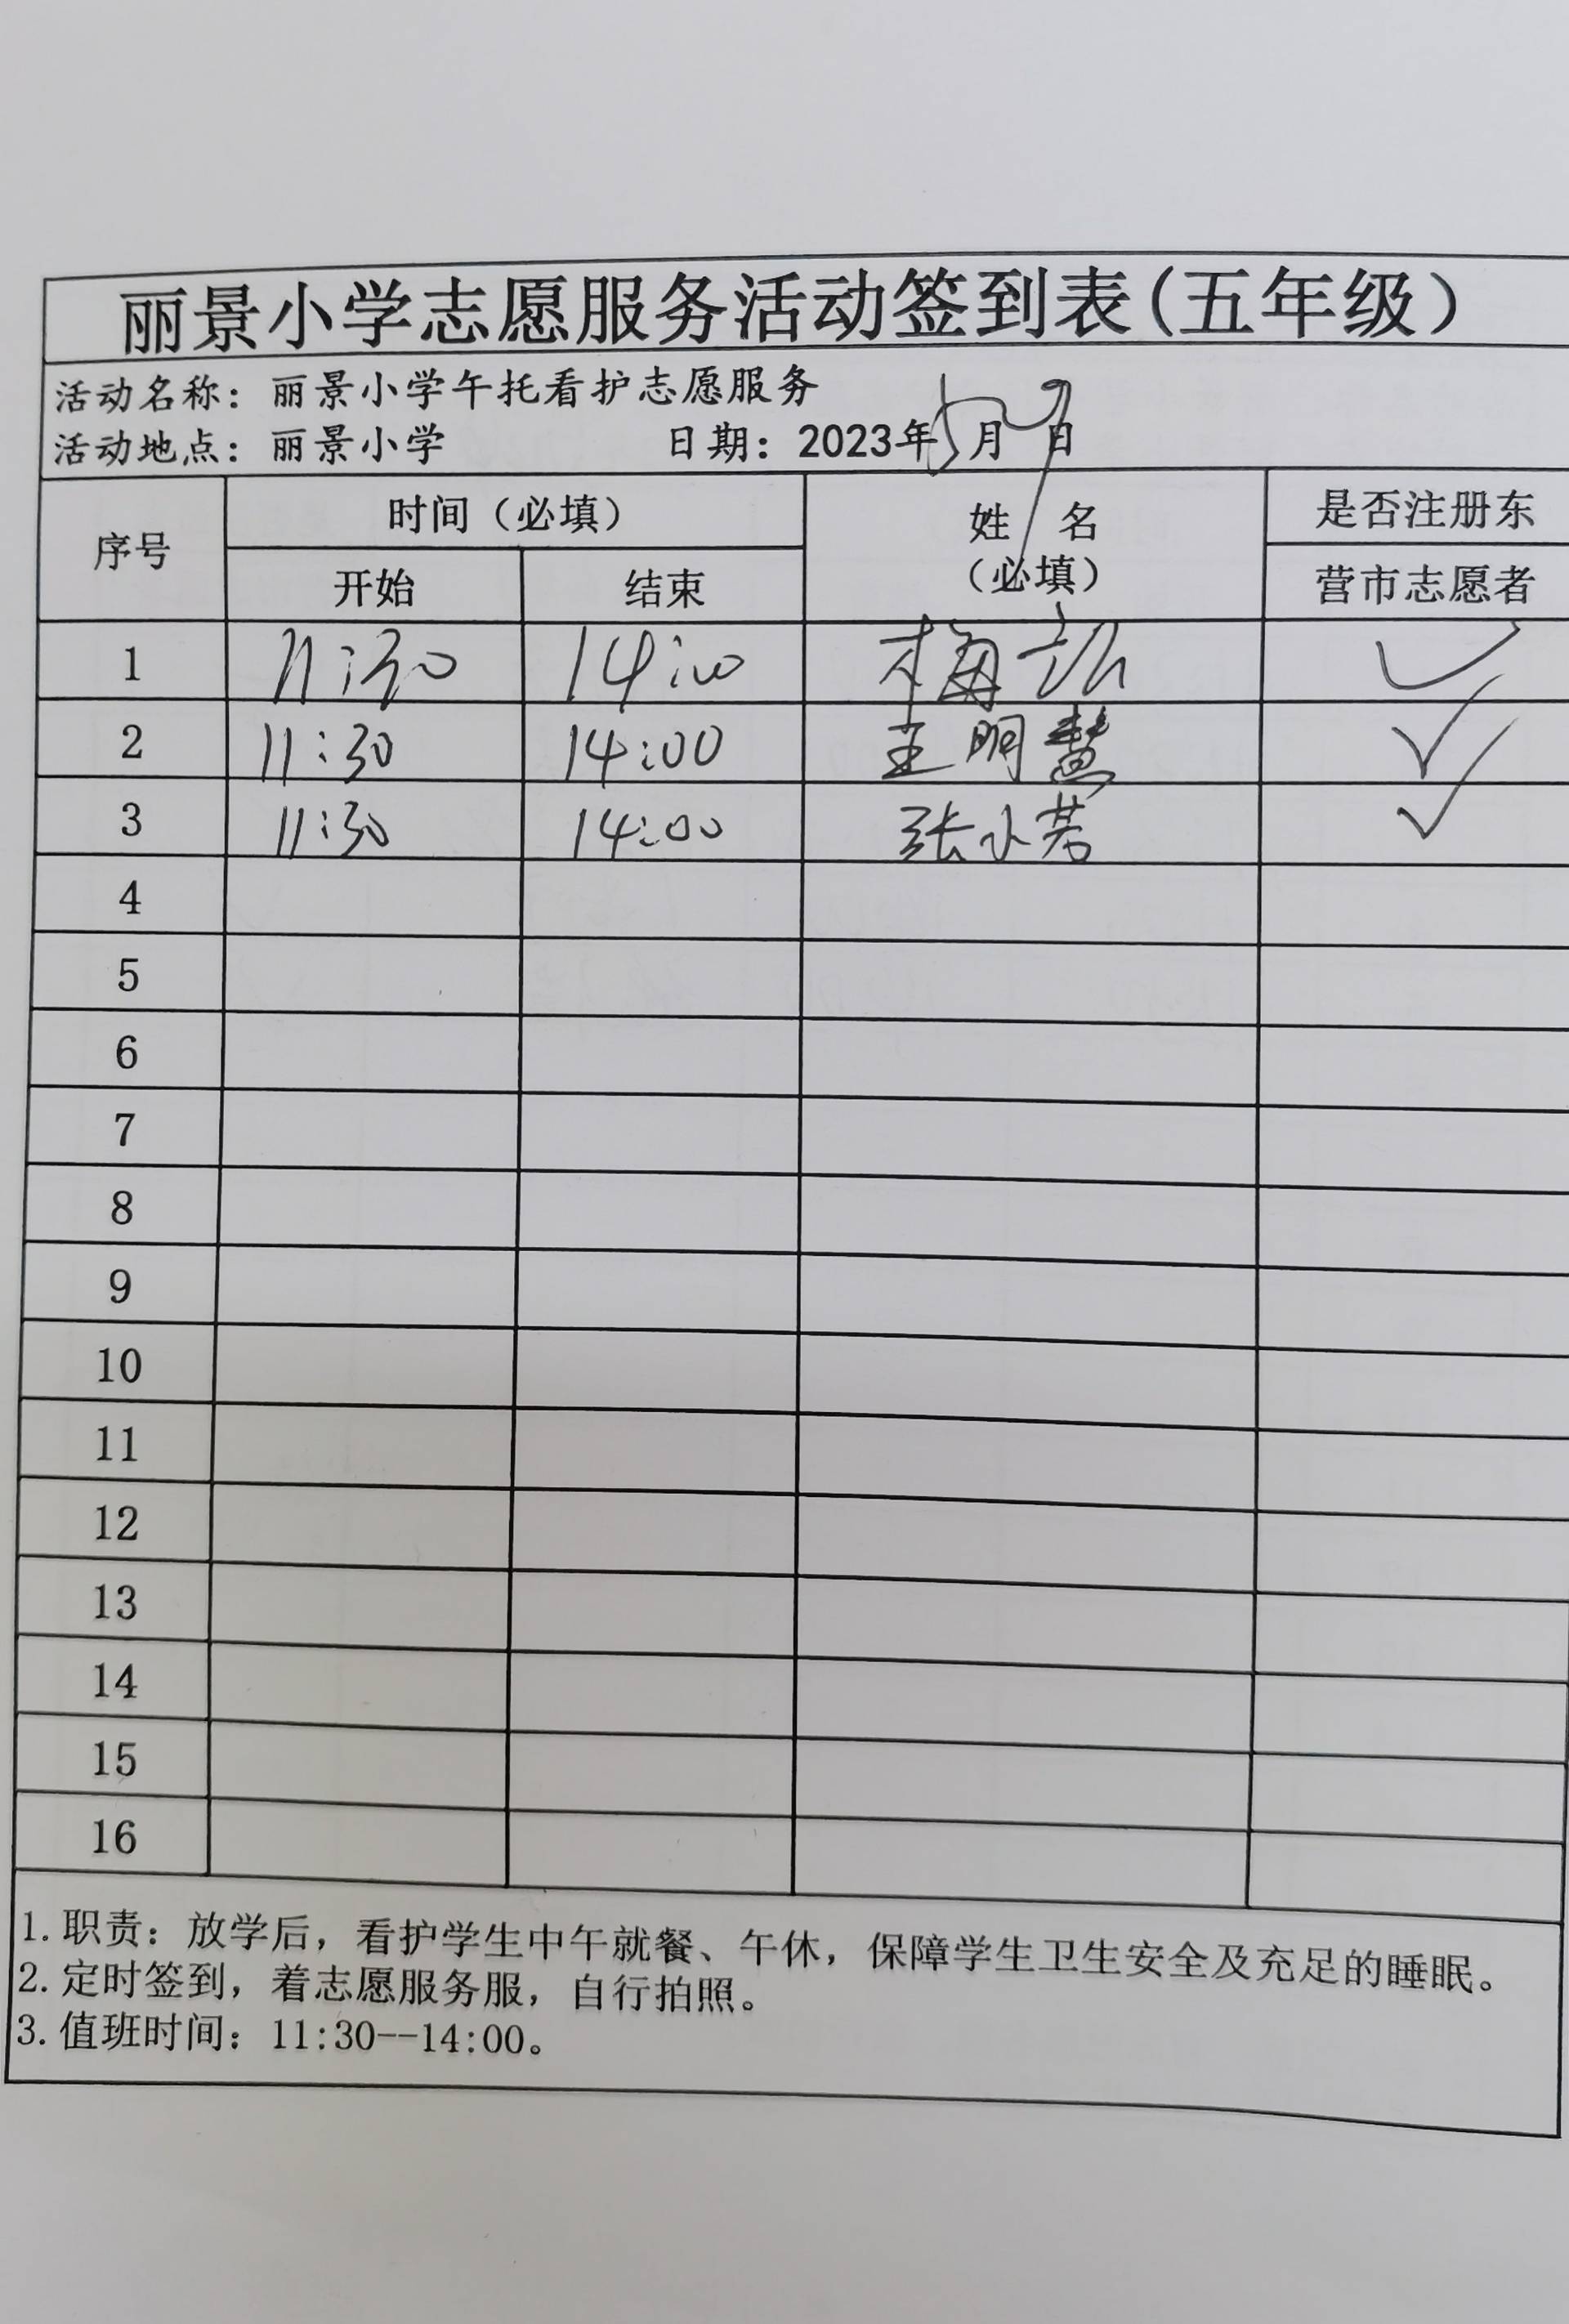 丽景小学志愿服务活动签到表(五年级）
活动名称：丽景小学午托看护志愿服务
活动地点：丽景小学 日期：2023年5月9日
序号 时间（必填） 姓 名（必填） 是否注册东营市志愿者
开始 结束
1 11:30 14:00 梅 ✓
2 11:30 14:00 王明慧 ✓
3 11:30 14:00 张小若 ✓
4
5
6
7
8
9
10
11
12
13
14
15
16
1.职责：放学后，看护学生中午就餐、午休，保障学生卫生安全及充足的睡眠。
2.定时签到，着志愿服务服，自行拍照。
3.值班时间：11:30--14:00。